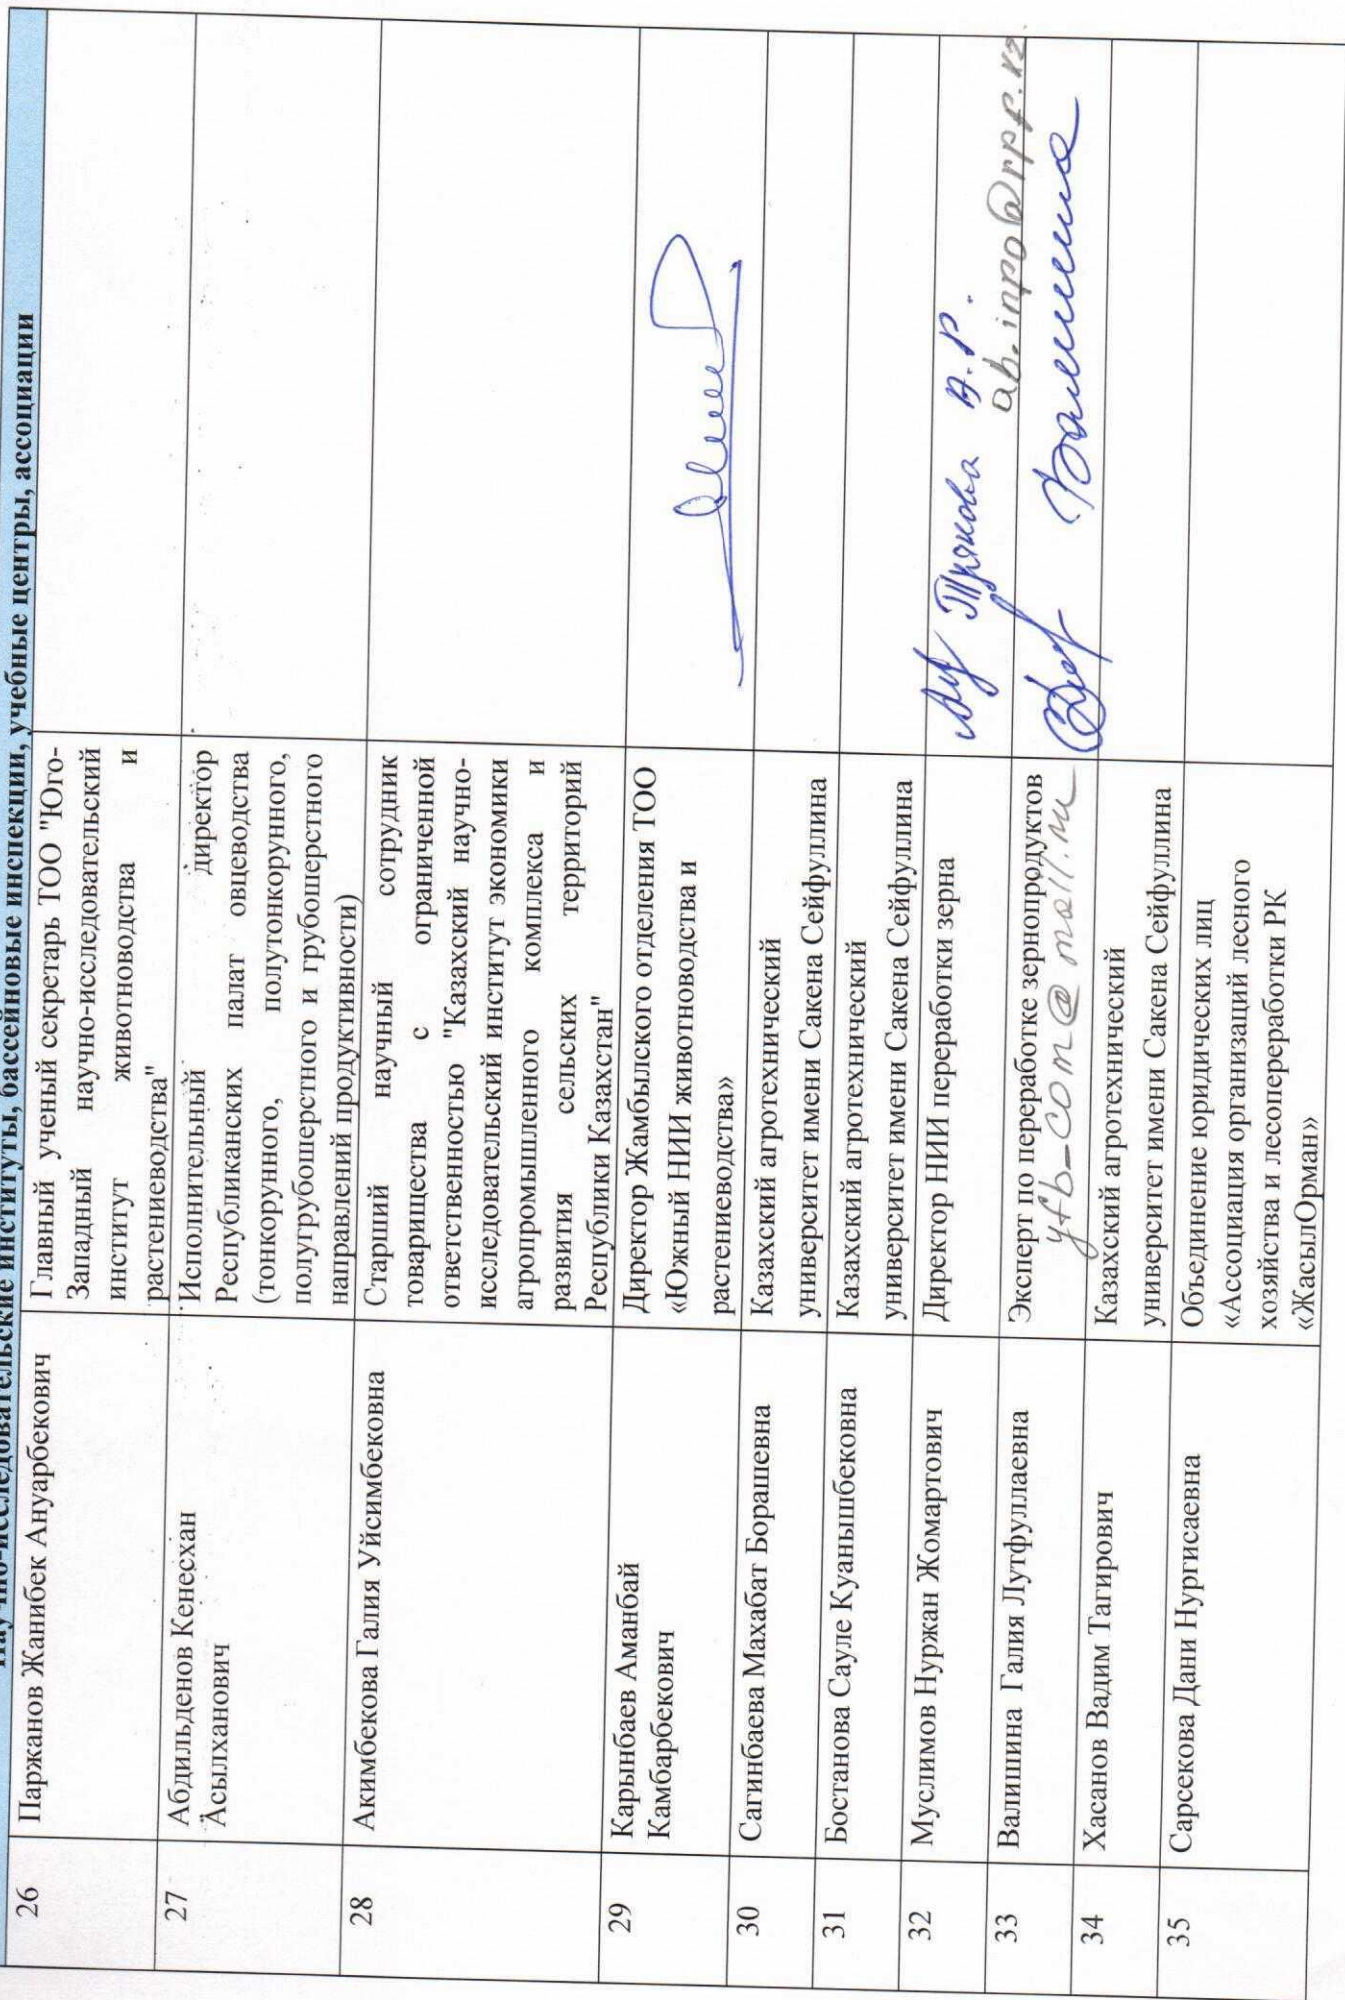 Научно-исследовательские институты, бассейновые инспекции, учебные центры, ассоциации
26
Паржанов Жанибек Ануарбекович
Главный ученый секретарь ТОО "Юго-
Западный научно-исследовательский
институт животноводства и
растениеводства"
27
Абдильденов Кенесхан
Асылханович
Исполнительный директор
Республиканских палат овцеводства
(тонкорунного, полутонкорунного,
полугрубошерстного и грубошерстного
направлений продуктивности)
28
Акимбекова Галия Уйсимбековна
Старший научный сотрудник
товарищества с ограниченной
ответственностью "Казахский научно-
исследовательский институт экономики
агропромышленного комплекса и
развития сельских территорий
Республики Казахстан"
29
Карынбаев Аманбай
Камбарбекович
Директор Жамбылского отделения ТОО
«Южный НИИ животноводства и
растениеводства»
30
Сагинбаева Махабат Борашевна
Казахский агротехнический
университет имени Сакена Сейфуллина
31
Бостанова Сауле Куанышбековна
Казахский агротехнический
университет имени Сакена Сейфуллина
32
Муслимов Нуржан Жомартович
Директор НИИ переработки зерна
33
Валишина Галия Лутфуллаевна
Эксперт по переработке зернопродуктов
Валишина
34
Хасанов Вадим Тагирович
Казахский агротехнический
университет имени Сакена Сейфуллина
35
Сарсекова Дани Нургисаевна
Объединение юридических лиц
«Ассоциация организаций лесного
хозяйства и лесопереработки РК
«ЖасылОрман»